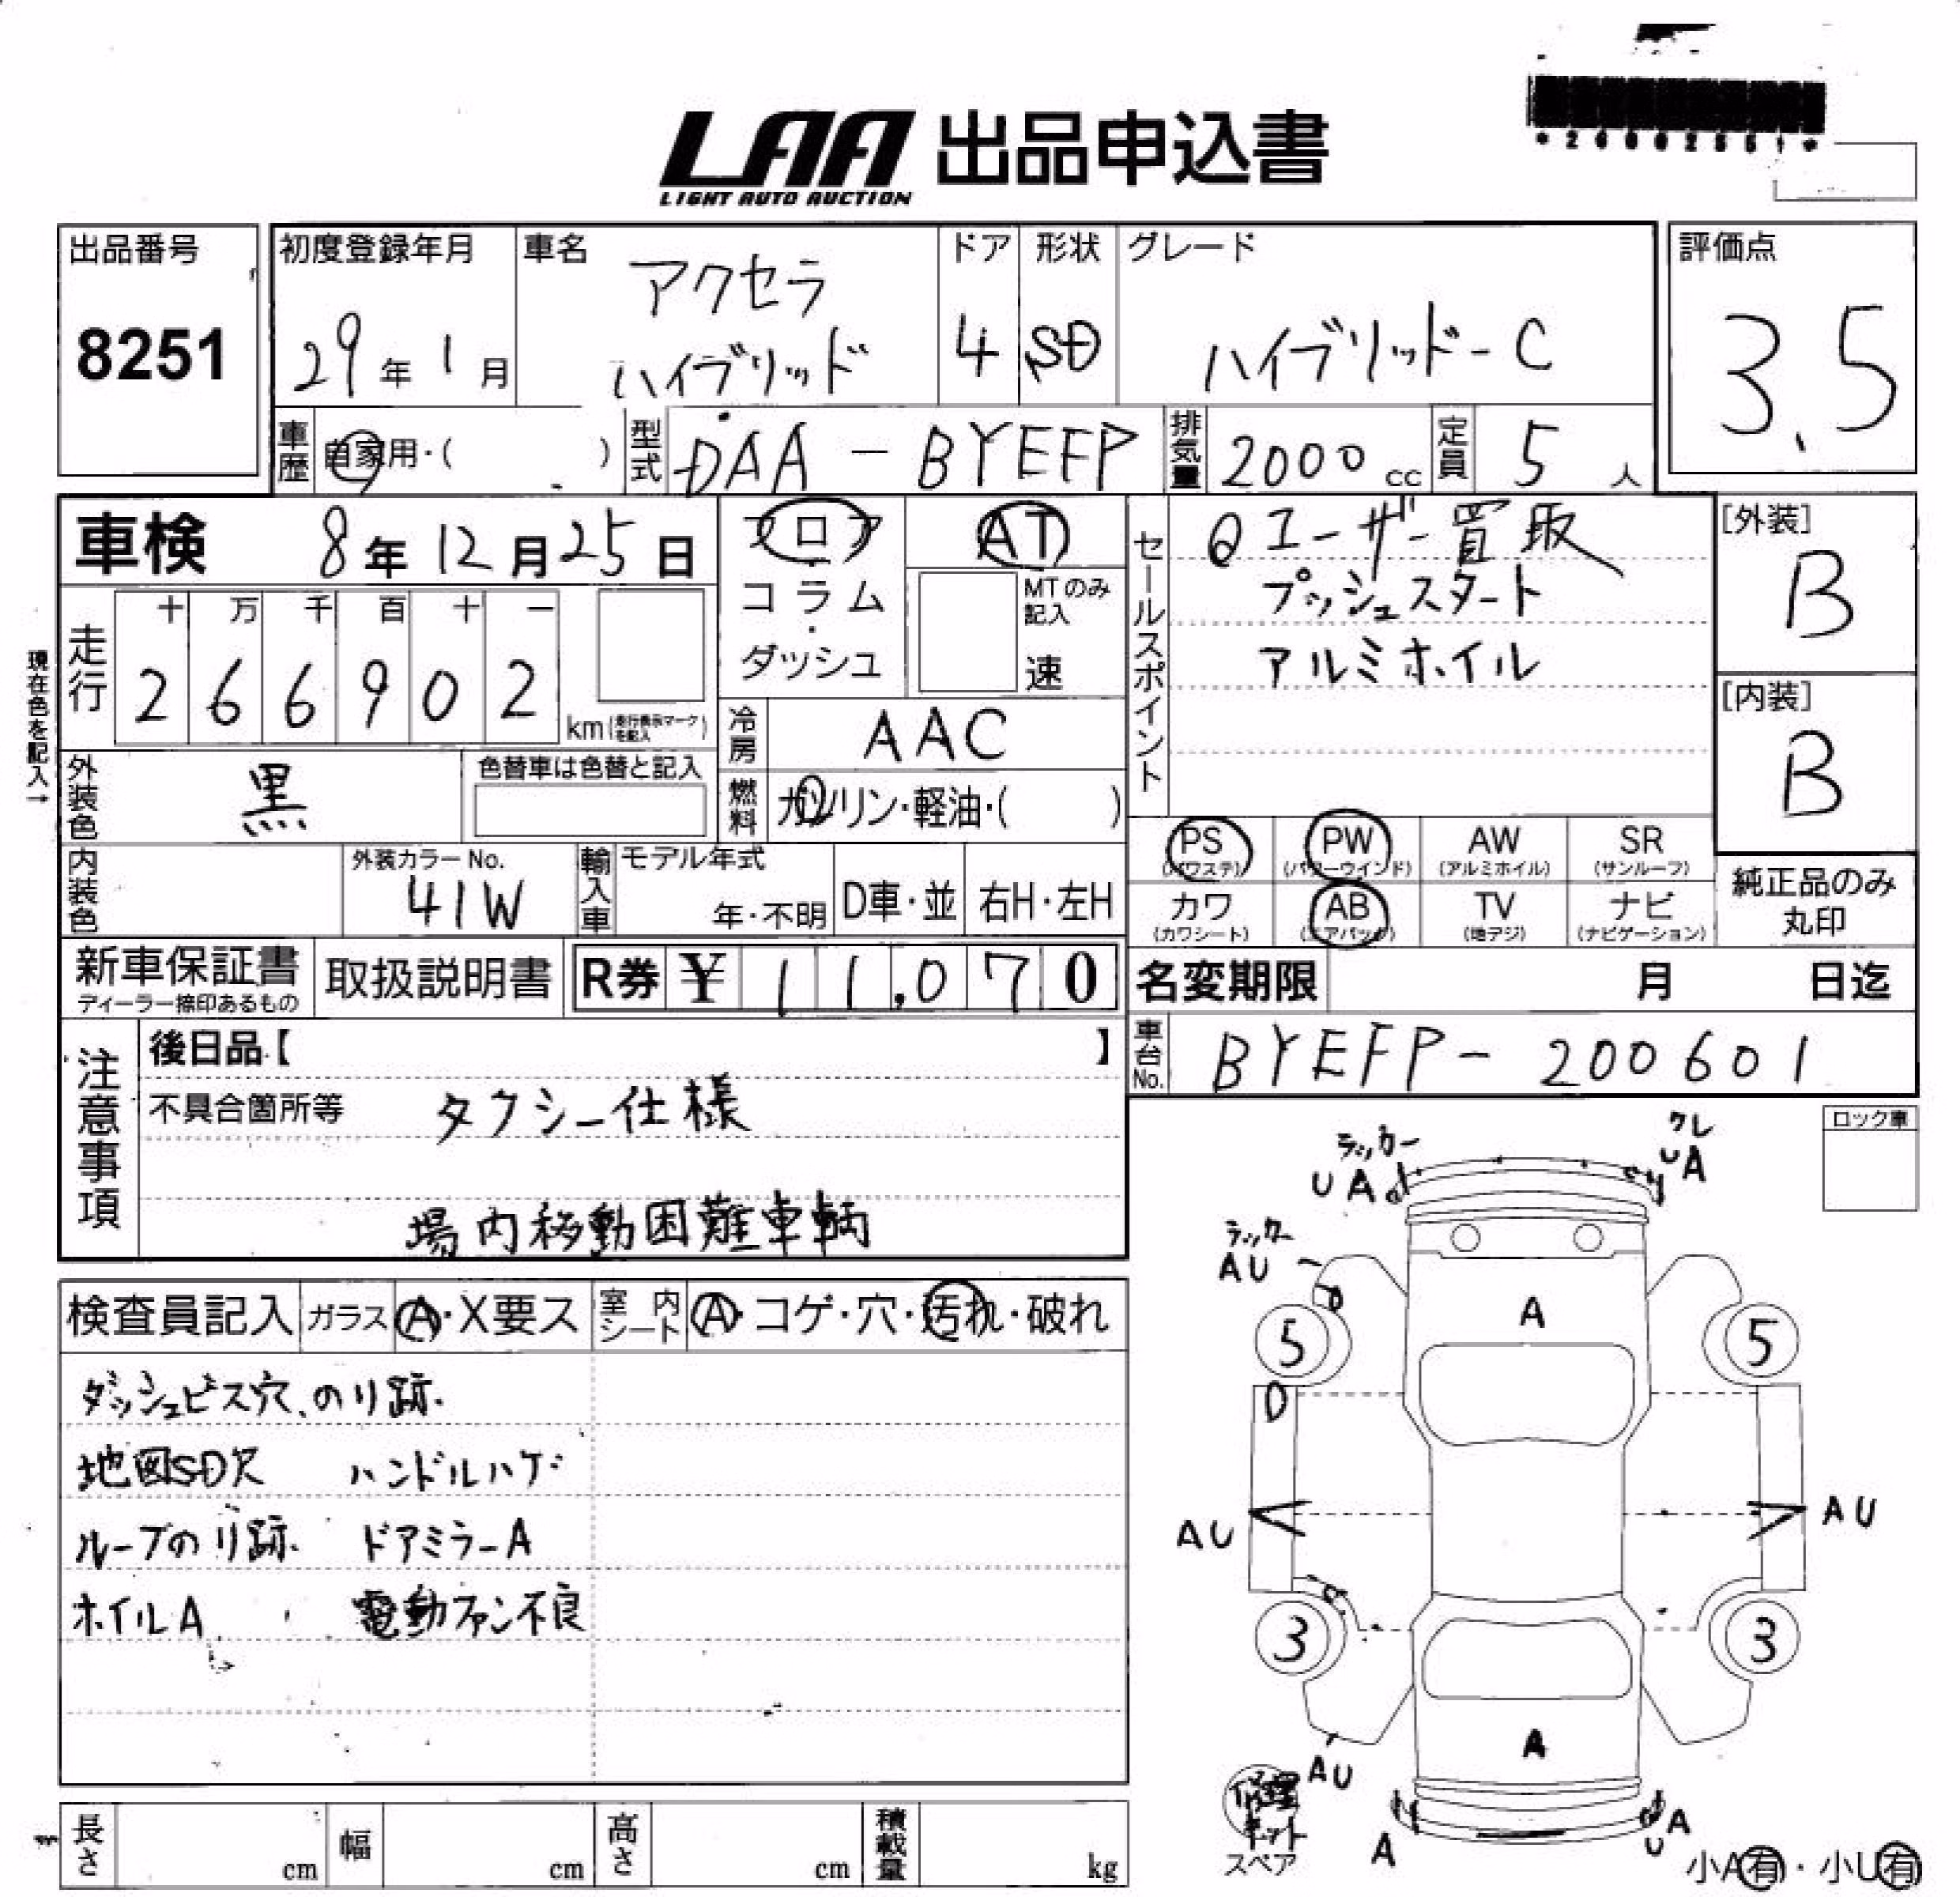 *26002551*
LAA 出品申込書
LIGHT AUTO AUCTION
出品番号
8251
初度登録年月
29年1月
車名
アクセラ
ハイブリッド
ドア
4
形状
SD
グレード
ハイブリッド-C
評価点
3.5
車歴
自家用・( )
型式
DAA-BYEFP
排気量
2000cc
定員
5人
車検 8年12月25日
走行
十万千百十一
266902
km(走行表示マークを記入)
現在色を記入→
フロア
コラム
・
ダッシュ
AT
MTのみ記入
速
冷房
AAC
燃料
ガソリン・軽油・( )
セールスポイント
ユーザー買取
プッシュスタート
アルミホイル
[外装]
B
[内装]
B
外装色
黒
色替車は色替と記入
内装色
外装カラーNo.
41W
輸入車
モデル年式
年・不明
D車・並
右H・左H
PS (パワステ)
PW (パワーウインド)
AW (アルミホイル)
SR (サンルーフ)
カワ (カワシート)
AB (エアバック)
TV (地デジ)
ナビ (ナビゲーション)
純正品のみ
丸印
新車保証書
ディーラー捺印あるもの
取扱説明書
R券 ¥11,070
名変期限 月 日迄
車台No.
BYEFP-200601
注意事項
後日品【 】
不具合箇所等 タクシー仕様
場内移動困難車輌
ロック車
検査員記入
ガラス A・X要ス
室内シート A・コゲ・穴・汚れ・破れ
ダッシュビス穴、のり跡.
地図SD欠 ハンドルハゲ
ルーフのり跡. ドアミラーA
ホイルA 電動ファン不良
ラッカー
UA
クレ
UA
ラッカー
AU
A
5
5
AU
AU
3
3
A
AU
修理キット
スペア
A
A
U
小A有・小U有
長さ cm
幅 cm
高さ cm
積載量 kg